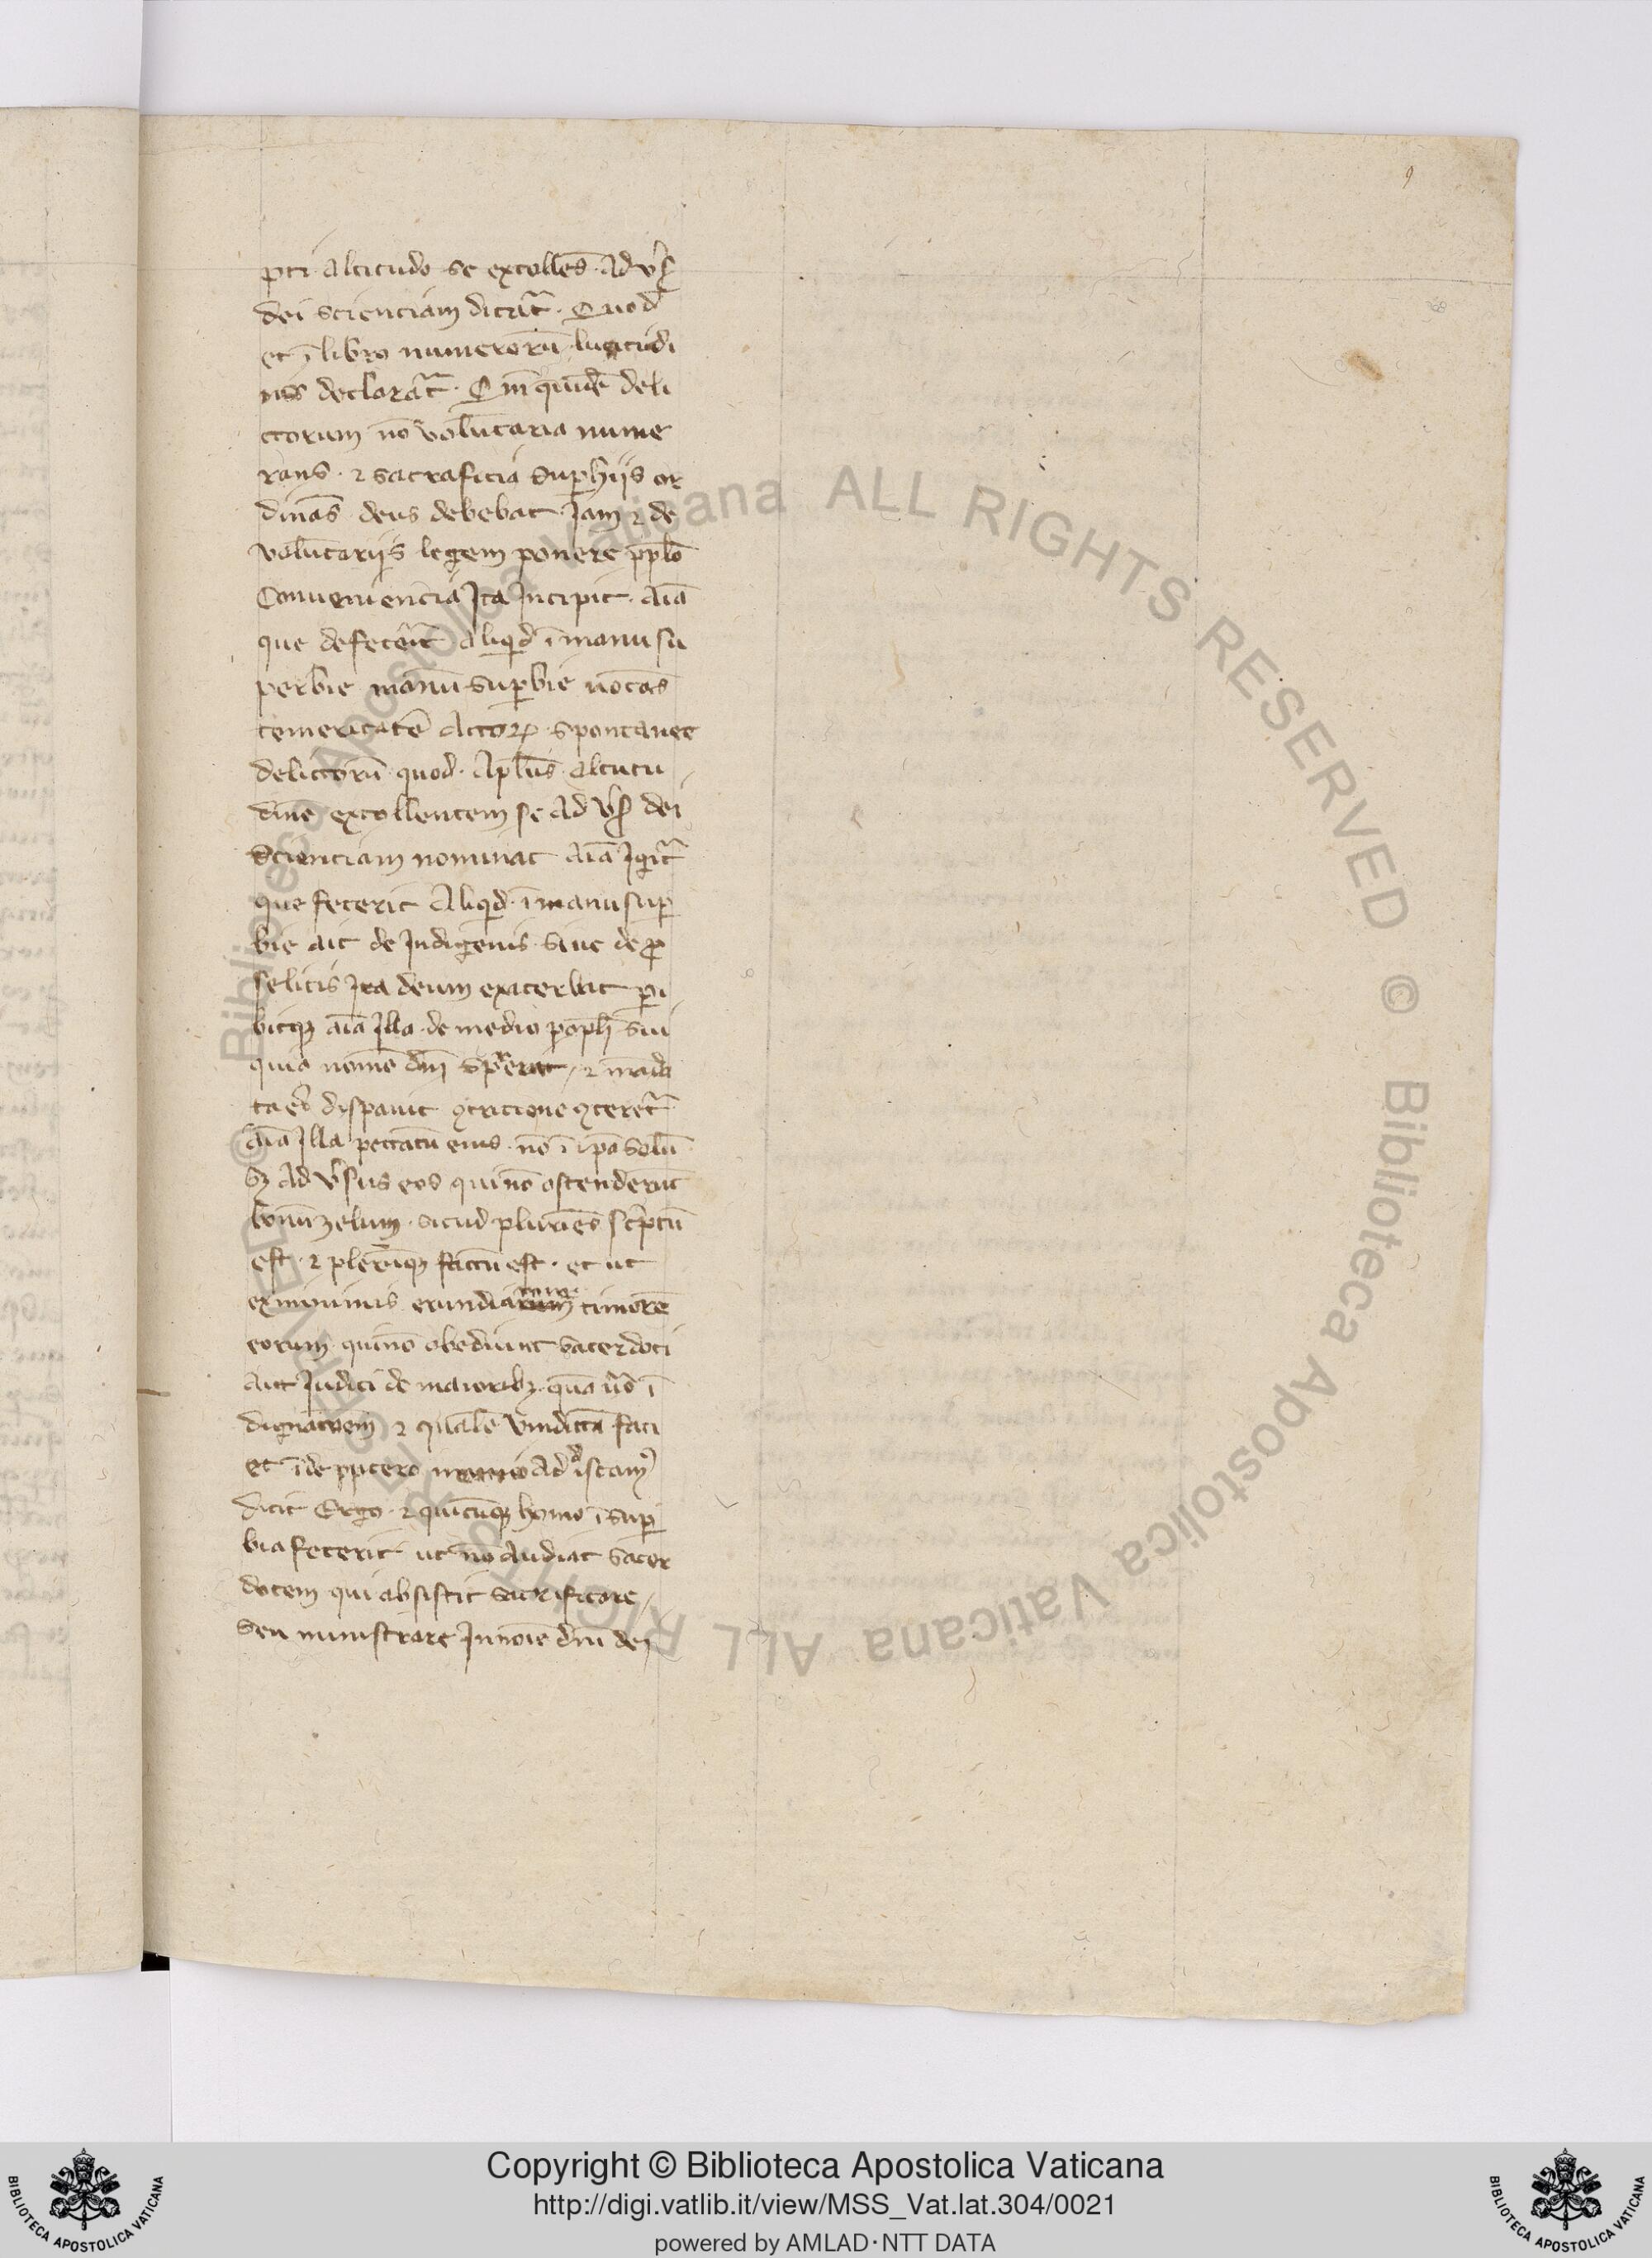 9
pcti altitudo se extollēs adv̾s
dei scienciam dicat᷑. Quod
et ī libro numerorū lucitudi
nis declarat᷑. Qm̄ quidē deli
ctorum nō volūtaria nume
rans. ⁊ sacraficia suph̄ijs or
dinās deus debebat. Iam ⁊ de
volūtarijs legem ponere pp̄lo
Conueniencia Ita Incipit. aīa
que defecerit aliqd̄ ī manu su
perbie manū supbie uocās
temeritatē actoꝝ spontanee
delictorū quod. Apl̄us altitu
dinē extollentem se adv̾s dei
Scienciam nominat aīa Igit᷑
que fecerit Aliqd̄. ī manu sup
bie ait de Indigenis. siue de ꝓ
selitis Ita deum exacerbat pi
bitqꝫ aīa Illa. de medio popl̄i sui
quia nomē dn̄i spreuit, ⁊ māda
ta eiꝰ dispauit ꝯtricione ꝯteret᷑
aīa Illa peccatū eius. nō ī ipa solū
sꝫ adv̾sus eos qui nō ostenderūt
bonū zelum. sicud pluriēs sc̄ptū
est. ⁊ plerūqꝫ factū est. et ut
ex minimis erundia timorē
eorum qui nō obediunt sacerdoti
aut Iudici de maioribꝫ. quā nō ī
dignacōem ⁊ qualē vindictā faci
et īde ad istam
dicit Ergo. ⁊ quicūqꝫ homo ī sup
bia fecerit ut nō audiat sacer
dotem qui absistit sacrificare,
Seu ministrare In noīe dn̄i dei
© Biblioteca Apostolica Vaticana ALL RIGHTS RESERVED © Biblioteca Apostolica Vaticana ALL RIGHTS RESERVED
BIBLIOTECA APOSTOLICA VATICANA
Copyright © Biblioteca Apostolica Vaticana
http://digi.vatlib.it/view/MSS_Vat.lat.304/0021
powered by AMLAD·NTT DATA
BIBLIOTECA APOSTOLICA VATICANA